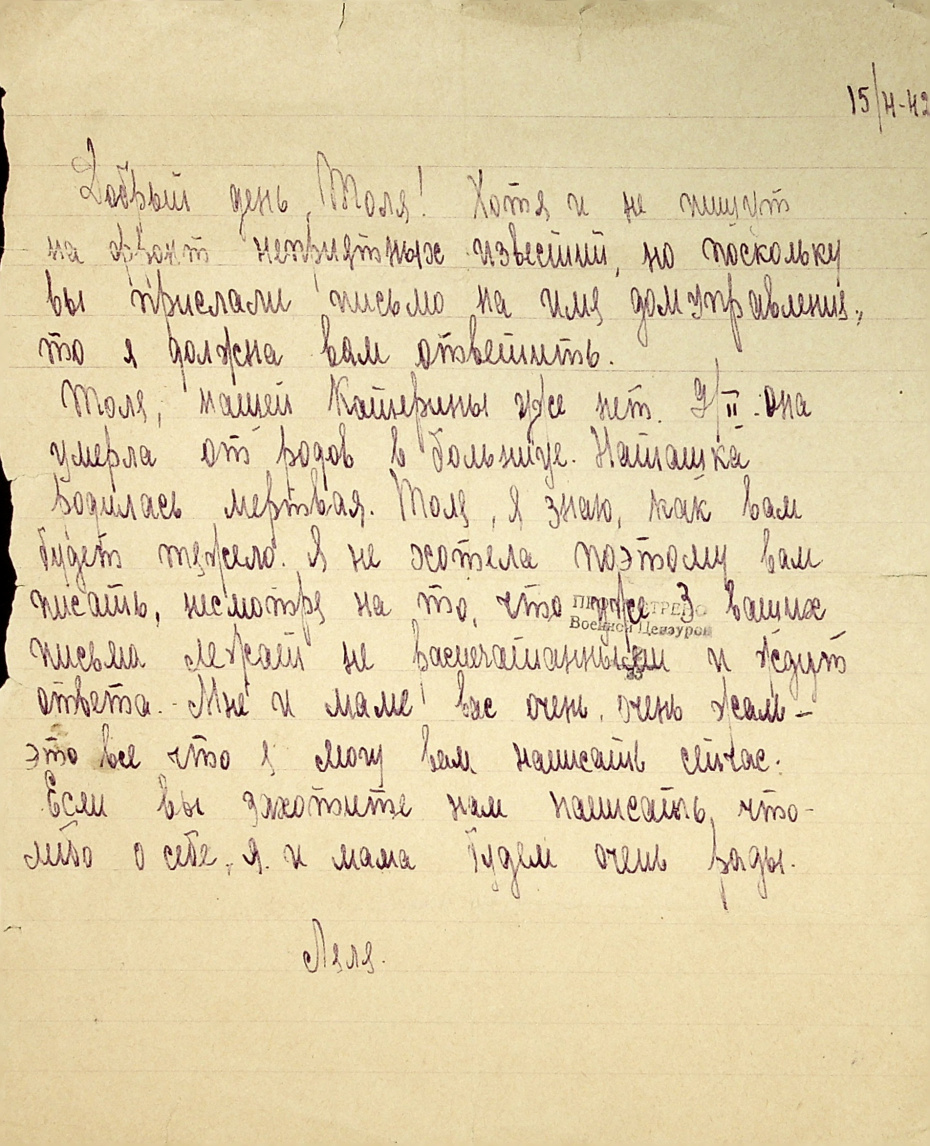 15/II-42
Добрый день, Толя! Хотя и не пишут
на фронт неприятных известий, но поскольку
вы прислали письмо на имя домуправления,
то я должна вам ответить.
Толя, нашей Катерины уже нет. 9/II она
умерла от родов в больнице. Наташка
родилась мертвая. Толя, я знаю, как вам
будет тяжело. Я не хотела поэтому вам
писать, несмотря на то, что уже 3 ваших
Военной Цензурой
письма лежат не распечатанными и ждут
ответа. Мне и маме вас очень, очень жаль -
это все что я могу вам написать сейчас.
Если вы захотите нам написать, что-
либо о себе, я и мама будем очень рады.
Ляля.